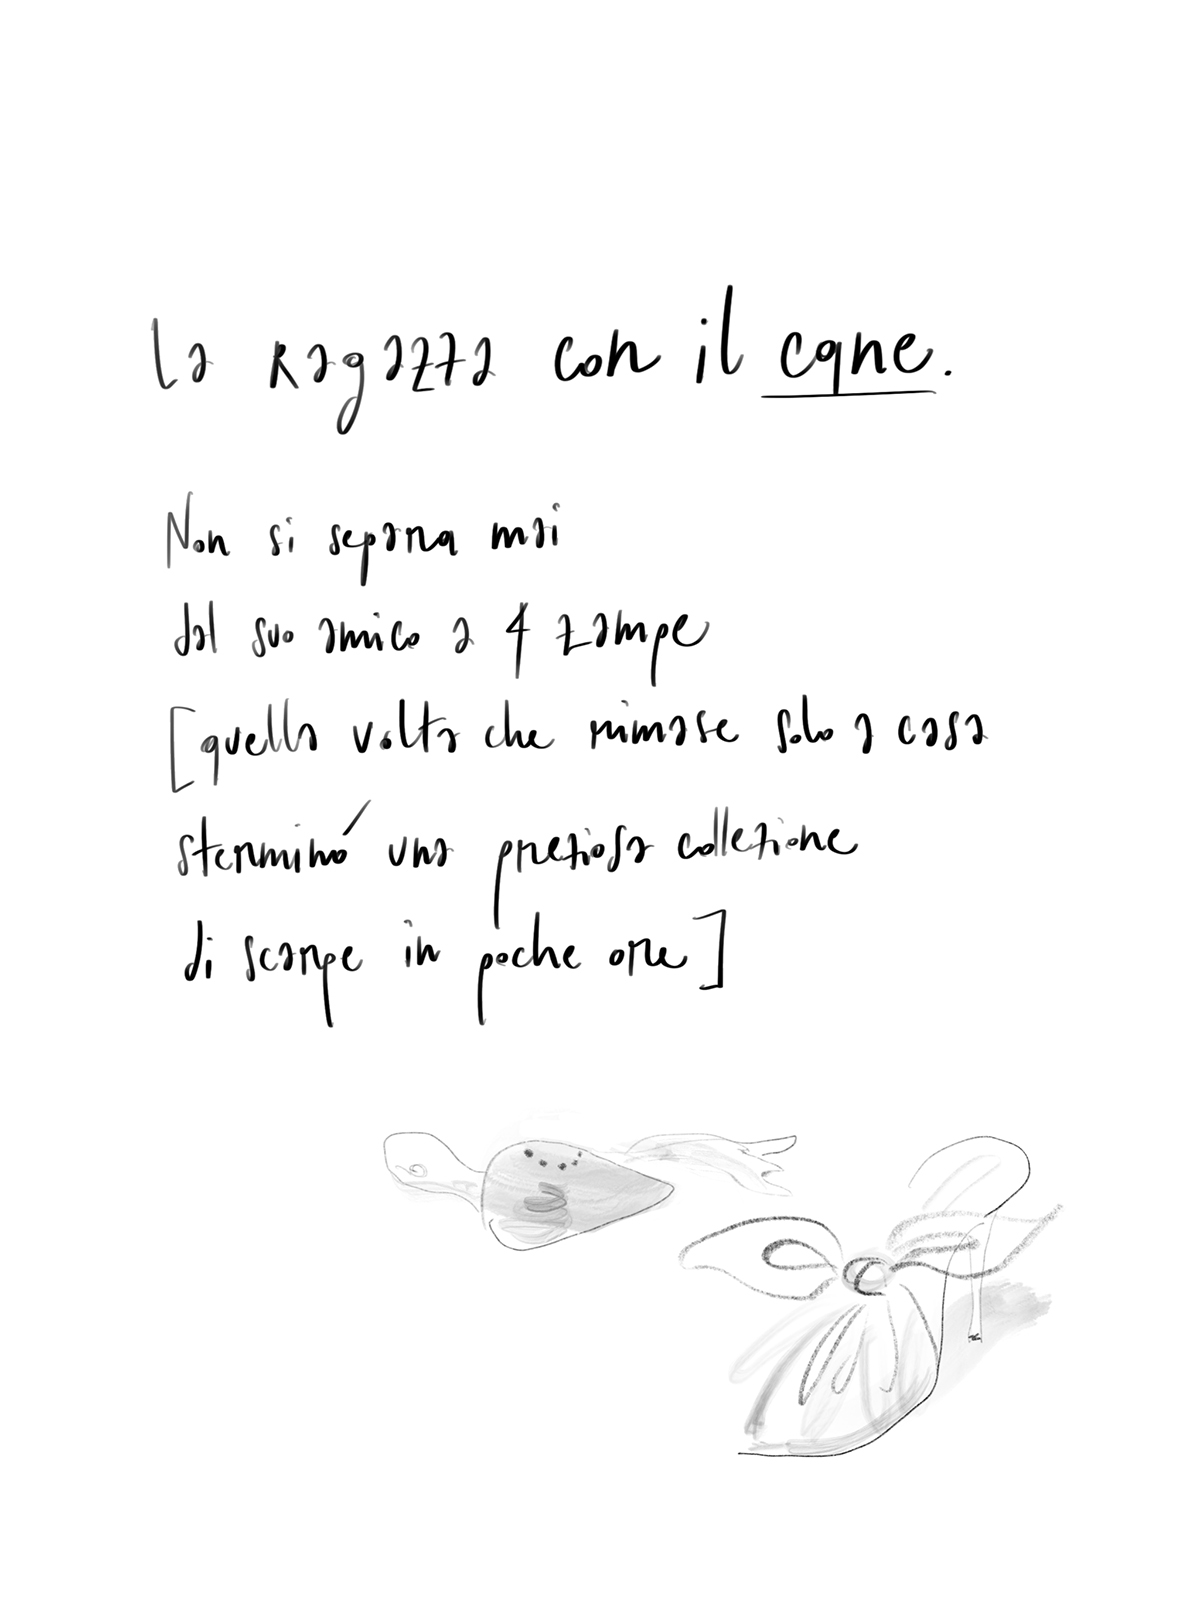 La Ragazza con il cane.
Non si separa mai
dal suo amico a 4 zampe
[quella volta che rimase solo a casa
sterminó una preziosa collezione
di scarpe in poche ore]